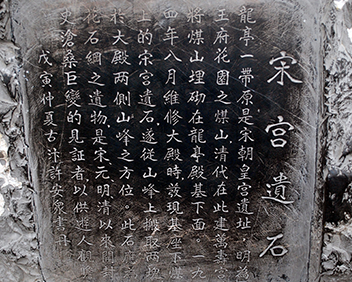 宋宮遺石
龍亭一帶原是宋朝皇宮遺址,明爲
王府花園之煤山,清代在此建萬壽宮
將煤山埋砌在龍亭殿基下面。一九
四年八月維修大殿時發現基座下煤
山上的宋宮遺石遂從山峰上搬取兩塊
於大殿兩側山峰之方位。此石
花石綱之遺物是宋元明清以來開封
史滄桑巨變的見証者,以供遊人觀
戊寅仲夏古汴許安衆書丹